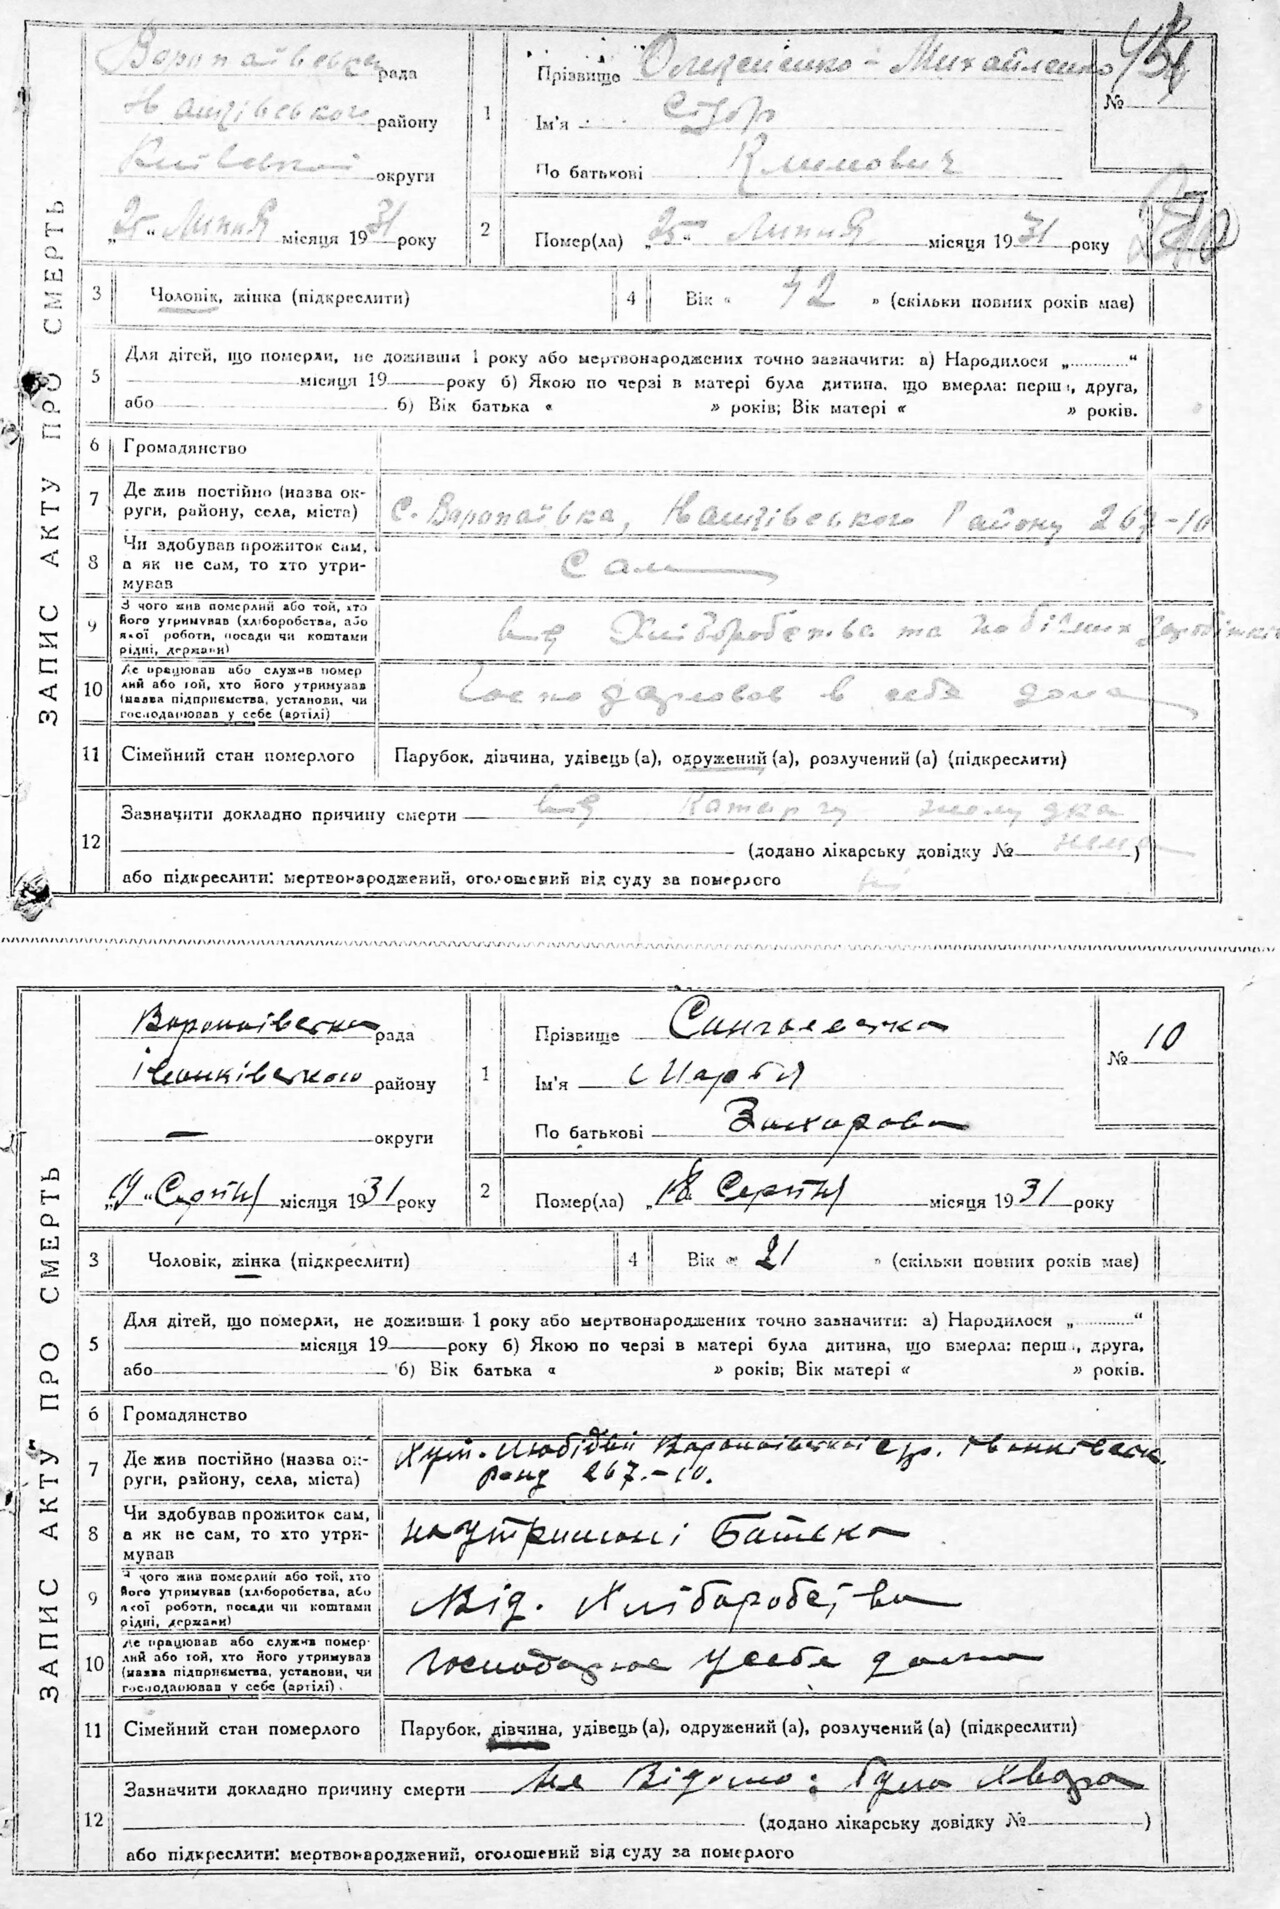 ЗАПИС АКТУ ПРО СМЕРТЬ
Воропаївська рада
району
Київської округи
„25“ Липня місяця 1931 року
1
Прізвище Олексієнко-Михайленко
Ім'я Сидір
По батькові Климович
№
2
Помер(ла) „25“ Липня місяця 1931 року
3 Чоловік, жінка (підкреслити)
4 Вік « 42 » (скільки повних років має)
5 Для дітей, що померли, не доживши 1 року або мертвонароджених точно зазначити: а) Народилося „............“
місяця 19 року б) Якою по черзі в матері була дитина, що вмерла: перша, друга,
або б) Вік батька « » років; Вік матері « » років.
6 Громадянство
7 Де жив постійно (назва ок-
руги, району, села, міста) с. Воропаївка, Району 267-10
8 Чи здобував прожиток сам,
а як не сам, то хто утри-
мував Сам
9 З чого жив померлий або той, хто
його утримував (хліборобства, або
якої роботи, посади чи коштами
рідні, держави) від Хліборобства та побічних заробітків
10 Де працював або служив помер
лий або той, хто його утримував
(назва підприємства, установи, чи
господарював у себе (артілі) Господарював в себе дома
11 Сімейний стан померлого Парубок, дівчина, удівець (а), одружений (а), розлучений (а) (підкреслити)
12 Зазначити докладно причину смерти від Катару желудка
(додано лікарську довідку № нема)
або підкреслити: мертвонароджений, оголошений від суду за померлого ні
ЗАПИС АКТУ ПРО СМЕРТЬ
Воропаївська рада
Іванківського району
— округи
„19“ Серпня місяця 1931 року
1
Прізвище
Ім'я Марія
По батькові Захарова
№ 10
2
Помер(ла) „18 Серпня місяця 1931 року
3 Чоловік, жінка (підкреслити)
4 Вік « 21 » (скільки повних років має)
5 Для дітей, що померли, не доживши 1 року або мертвонароджених точно зазначити: а) Народилося „............“
місяця 19 року б) Якою по черзі в матері була дитина, що вмерла: перша, друга,
або б) Вік батька « » років; Вік матері « » років.
6 Громадянство
7 Де жив постійно (назва ок-
руги, району, села, міста) Хут. Воропаївської с/р. Іванківськ.
району 267.-10.
8 Чи здобував прожиток сам,
а як не сам, то хто утри-
мував на утриманні Батька
9 З чого жив померлий або той, хто
його утримував (хліборобства, або
якої роботи, посади чи коштами
рідні, держави) Від. Хліборобства
10 Де працював або служив помер-
лий або той, хто його утримував
(назва підприємства, установи, чи
господарював у себе (артілі). Господарює у себе дома
11 Сімейний стан померлого Парубок, дівчина, удівець (а), одружений (а), розлучений (а) (підкреслити)
12 Зазначити докладно причину смерти Не Відомо: Була Хвора
(додано лікарську довідку № )
або підкреслити: мертвонароджений, оголошений від суду за померлого